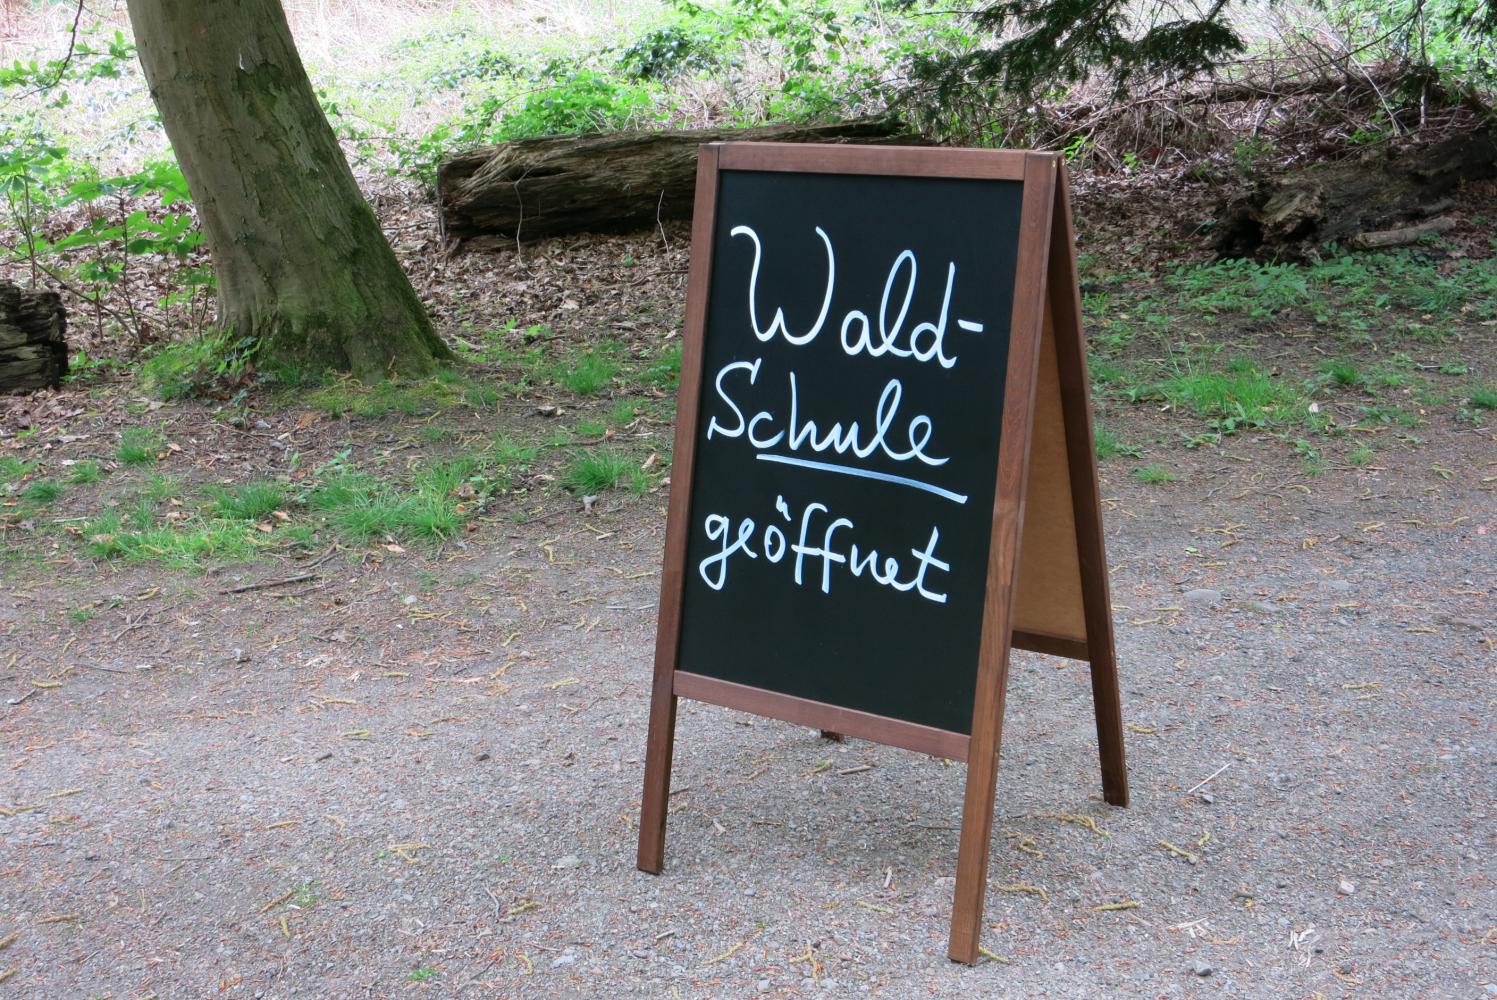 Wald-
Schule
geöffnet